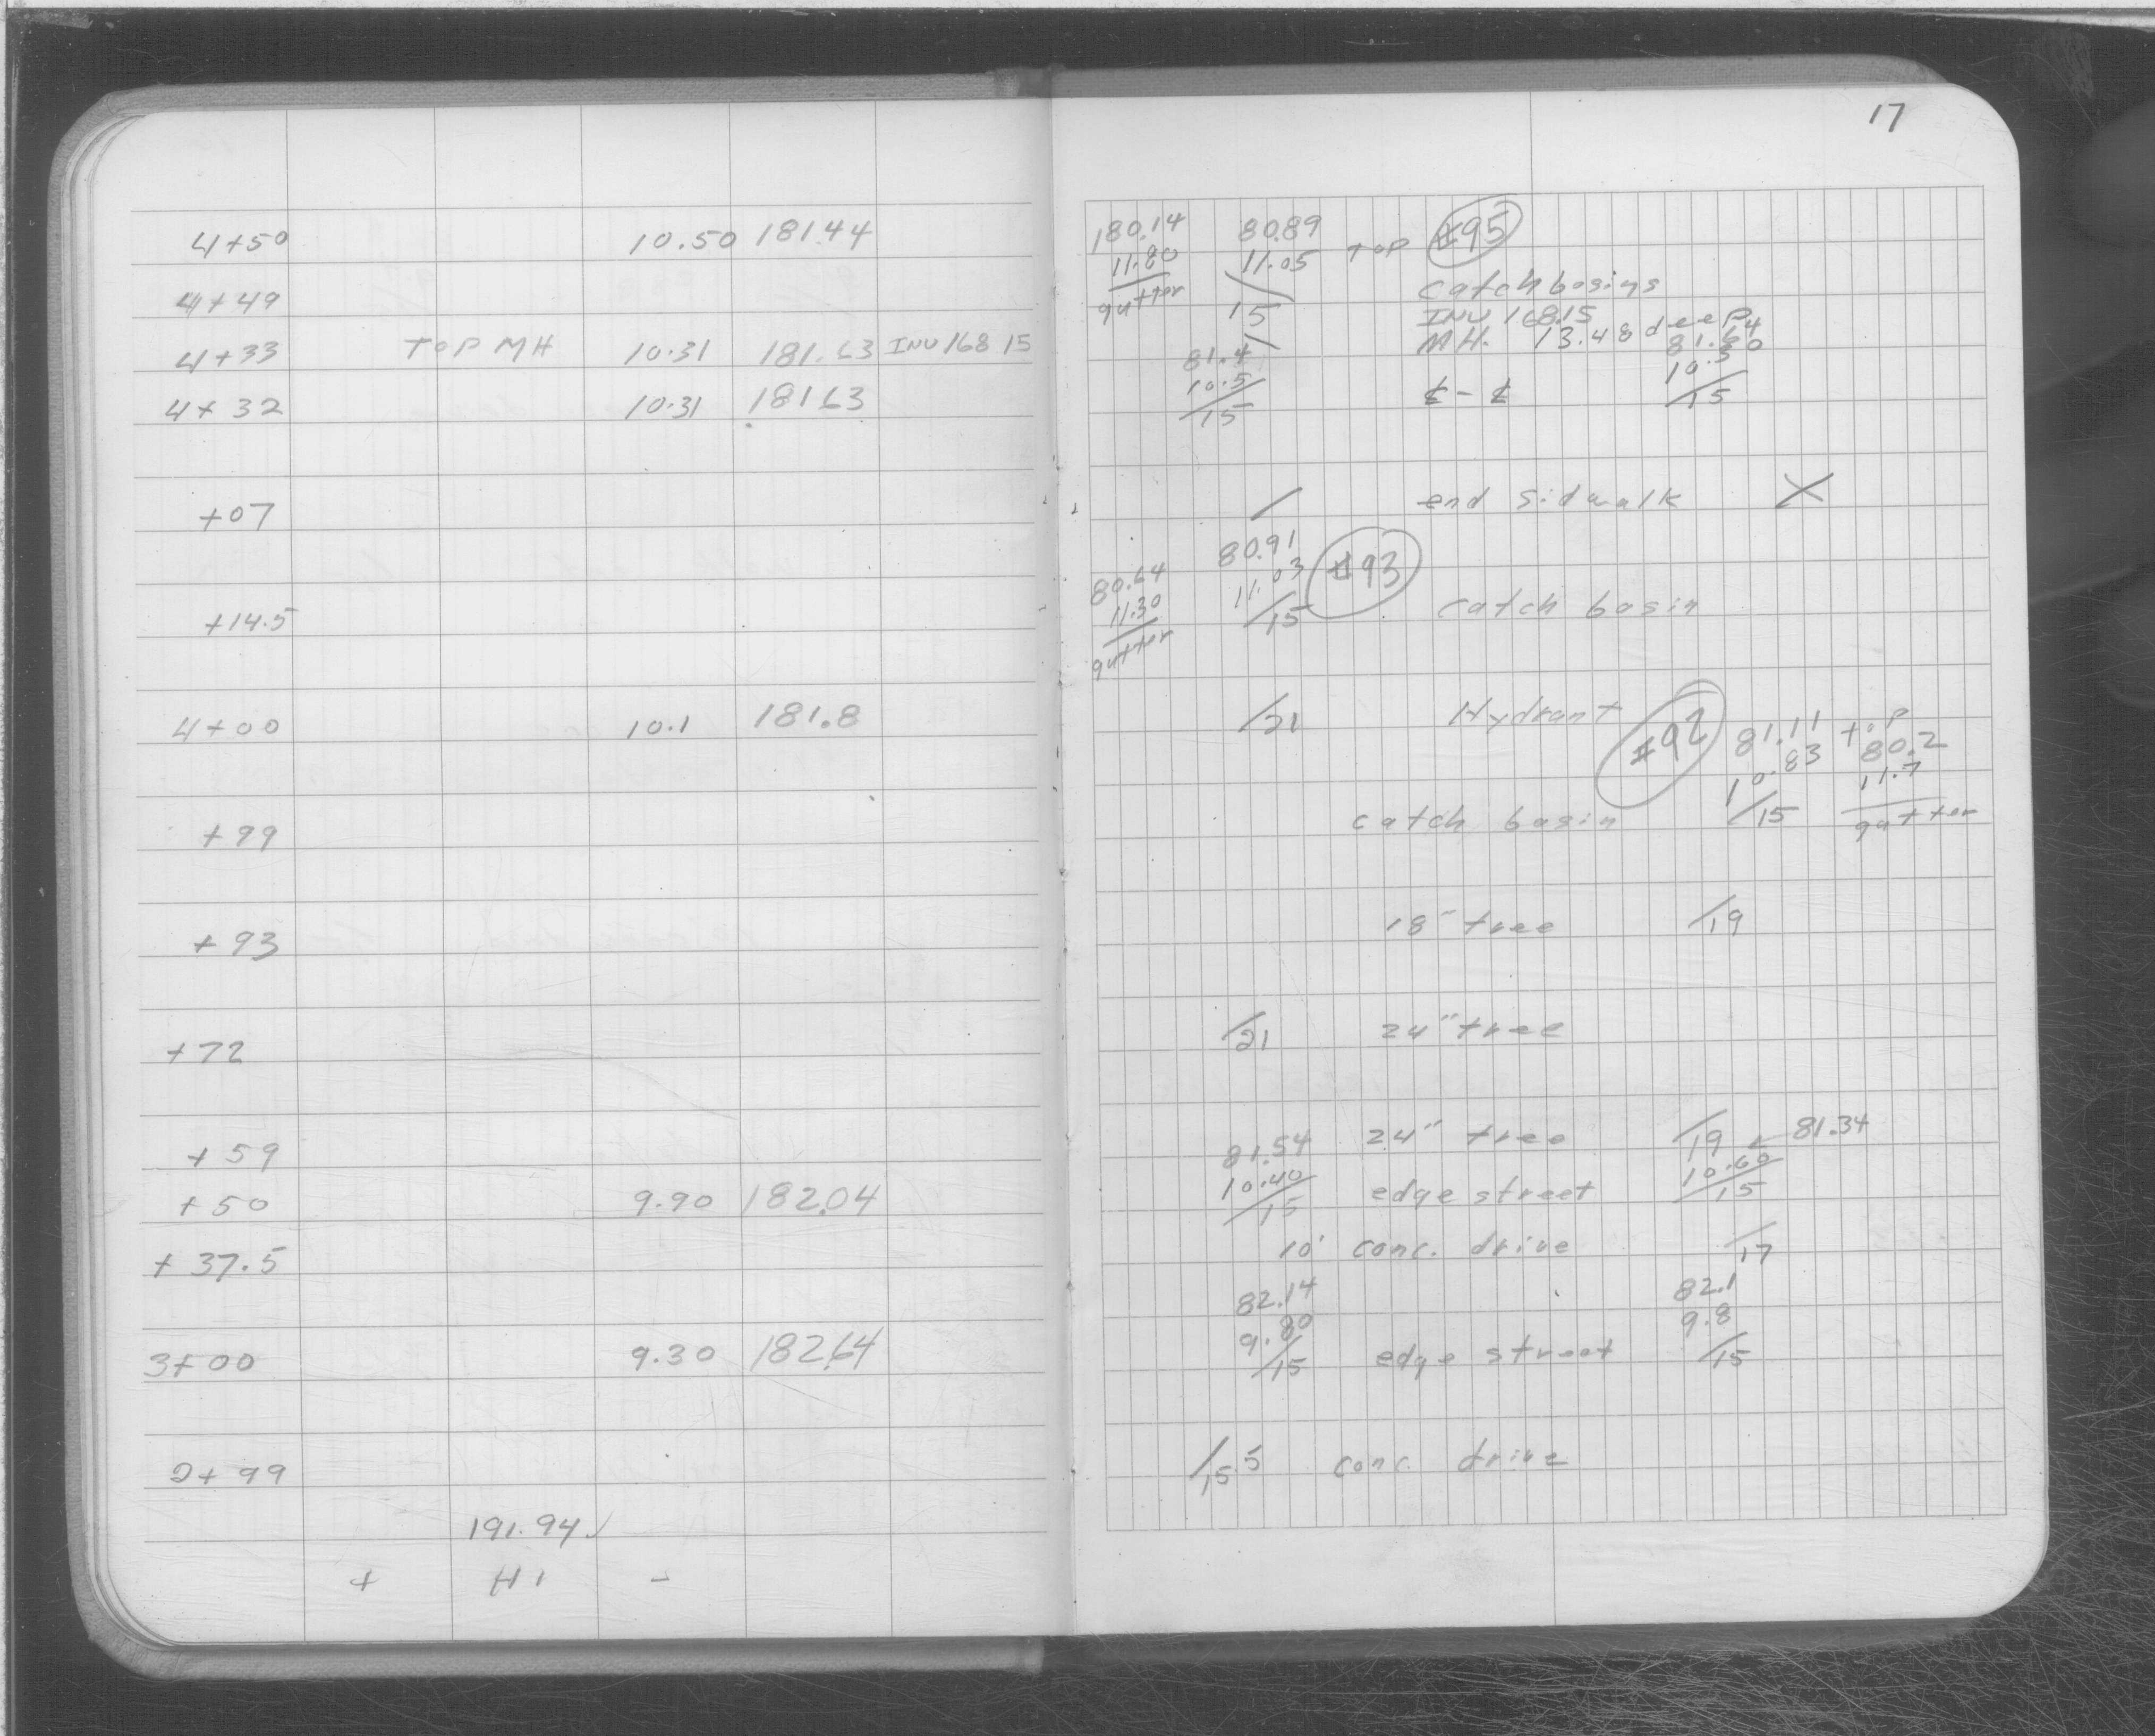 17
4+50 10.50 181.44
4+49
4+33 TOP MH 10.31 181.63 INV 168 15
4+32 10.31 181.63
+07
+14.5
4+00 10.1 181.8
+99
+93
+72
+59
+50 9.90 182.04
+37.5
3+00 9.30 182.64
2+99
191.94 ✓
+ HI -
180.14 80.89
11.80 11.05 TOP #95
gutter 15 catch basins
INV 168.15
MH. 13.48 deep
81.4
10.5 10.3
15 ℄ - ℄ 15
/ end sidwalk X
80.64 80.91 #93
11.30 11.03
gutter /15 catch basin
/21 Hydrant
#92 81.11 top 80.2
10.83 11.7
catch basin /15 gutter
18" tree /19
/21 24" tree
24" tree /19 81.34
81.54
10.40 10.60
15 edge street 15
10' conc. drive /17
82.14 82.1
9.80 9.8
/15 edge street /15
/15.5 conc. drive